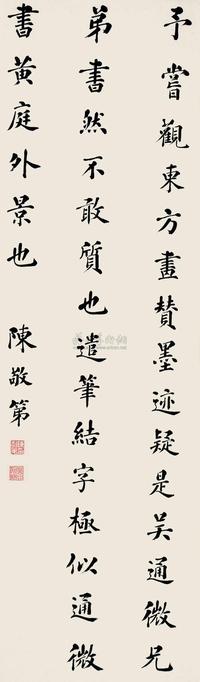 予嘗觀東方畫賛墨迹疑是吴通微兄
弟書然不敢質也遣筆結字極似通微
書黄庭外景也
陳敬第